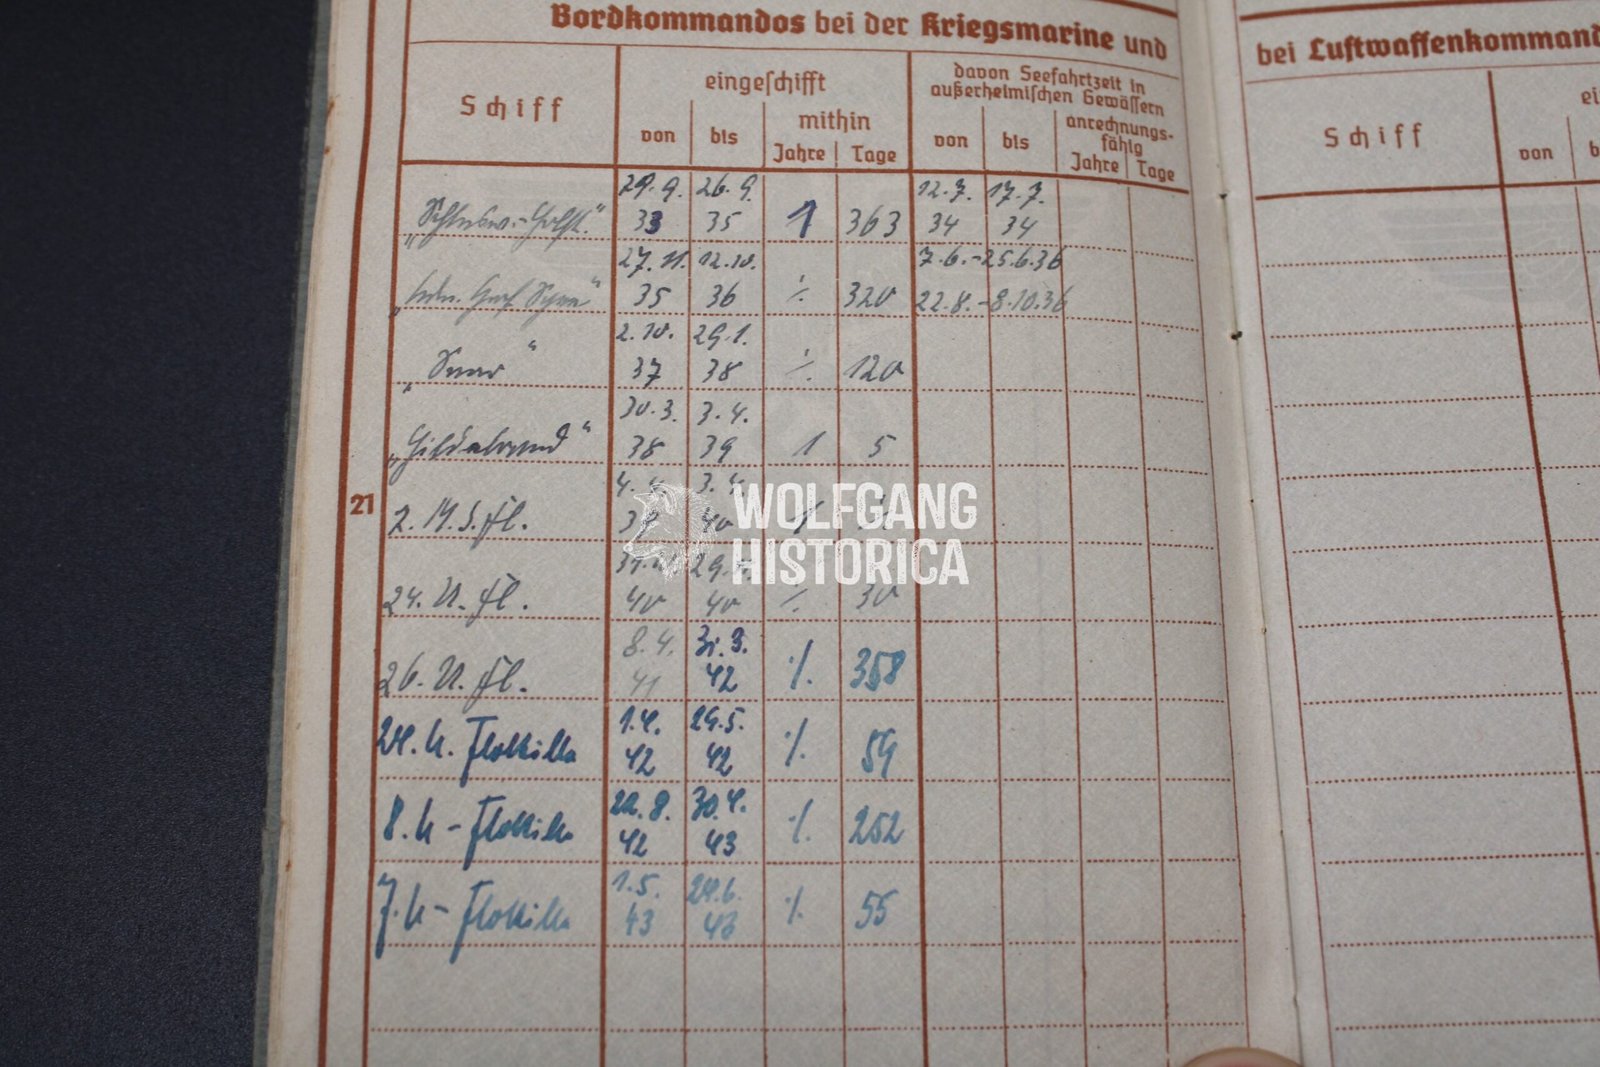 Bordkommandos bei der Kriegsmarine und
bei Luftwaffenkommand
Schiff
eingeschifft
von bis
mithin
Jahre Tage
davon Seefahrtzeit in
außerheimischen Gewässern
von bis
anrechnungs-
fähig
Jahre Tage
Schiff
ei
von b
29.9. 26.9. 12.7. 17.7.
"Schlesw.-Holst." 33 35 1 363 34 34
27.11. 12.10. 7.6.-25.6.36
36 ·/. 320 22.8.-8.10.36
35
2.10. 29.1.
37 38 ·/. 120
30.3. 3.4.
"Hildebrand" 38 39 1 5
4.4. 3.4.
21
2. M.S.Fl. 39 40 1
24. U. Fl. 40 40 ·/. 30
8.4. 31.3.
26. U. Fl. 41 42 ·/. 358
1.4. 29.5.
24. U. Flottille 42 42 ·/. 59
22.8. 30.4.
8. U-Flottille 42 43 ·/. 252
1.5. 24.6.
7. U-Flottille 43 43 ·/. 55
WOLFGANG
HISTORICA